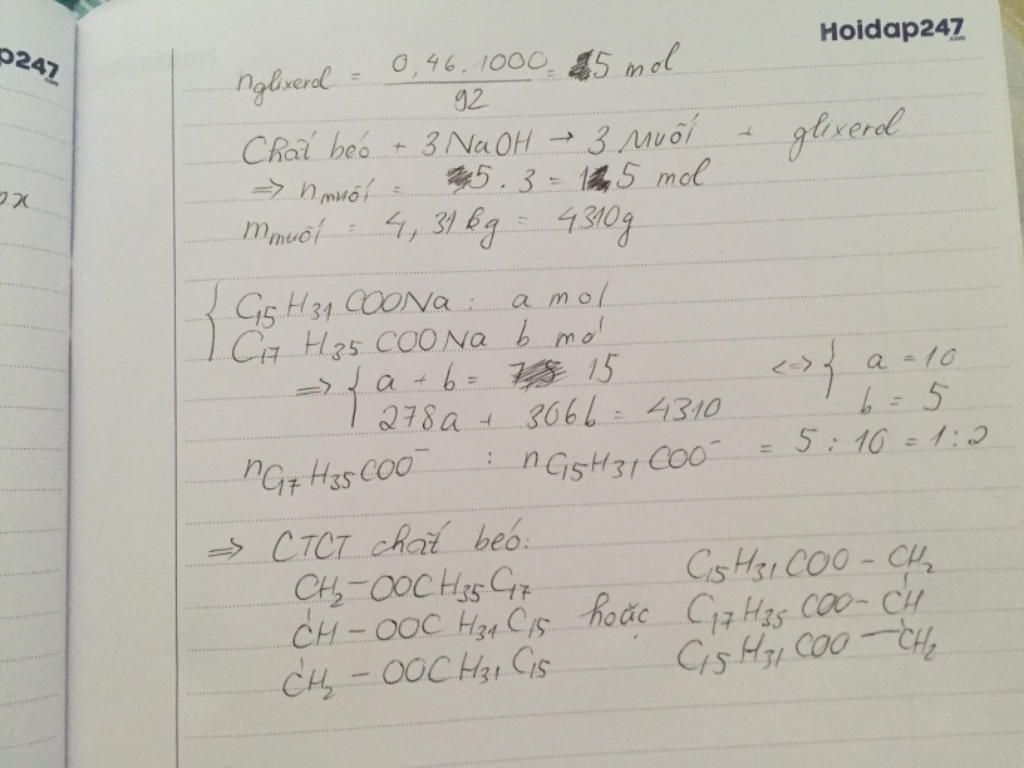 Hoidap247
.com
p247
.com
n glixerol = 0,46.1000 / 92 = 5 mol
Chất béo + 3 NaOH → 3 Muối + glixerol
⇒ n muối = 5 . 3 = 15 mol
m muối = 4,31 kg = 4310g
{ C15 H31 COONa : a mol
C17 H35 COONa b mol
⇒ { a + b = 15 <=> { a = 10
278a + 306b = 4310 b = 5
n C17 H35 COO⁻ : n C15 H31 COO⁻ = 5 : 10 = 1 : 2
⇒ CTCT chất béo:
CH2 – OOCH35 C17 C15 H31 COO – CH2
CH – OOC H31 C15 hoặc C17 H35 COO – CH
CH2 – OOCH31 C15 C15 H31 COO – CH2